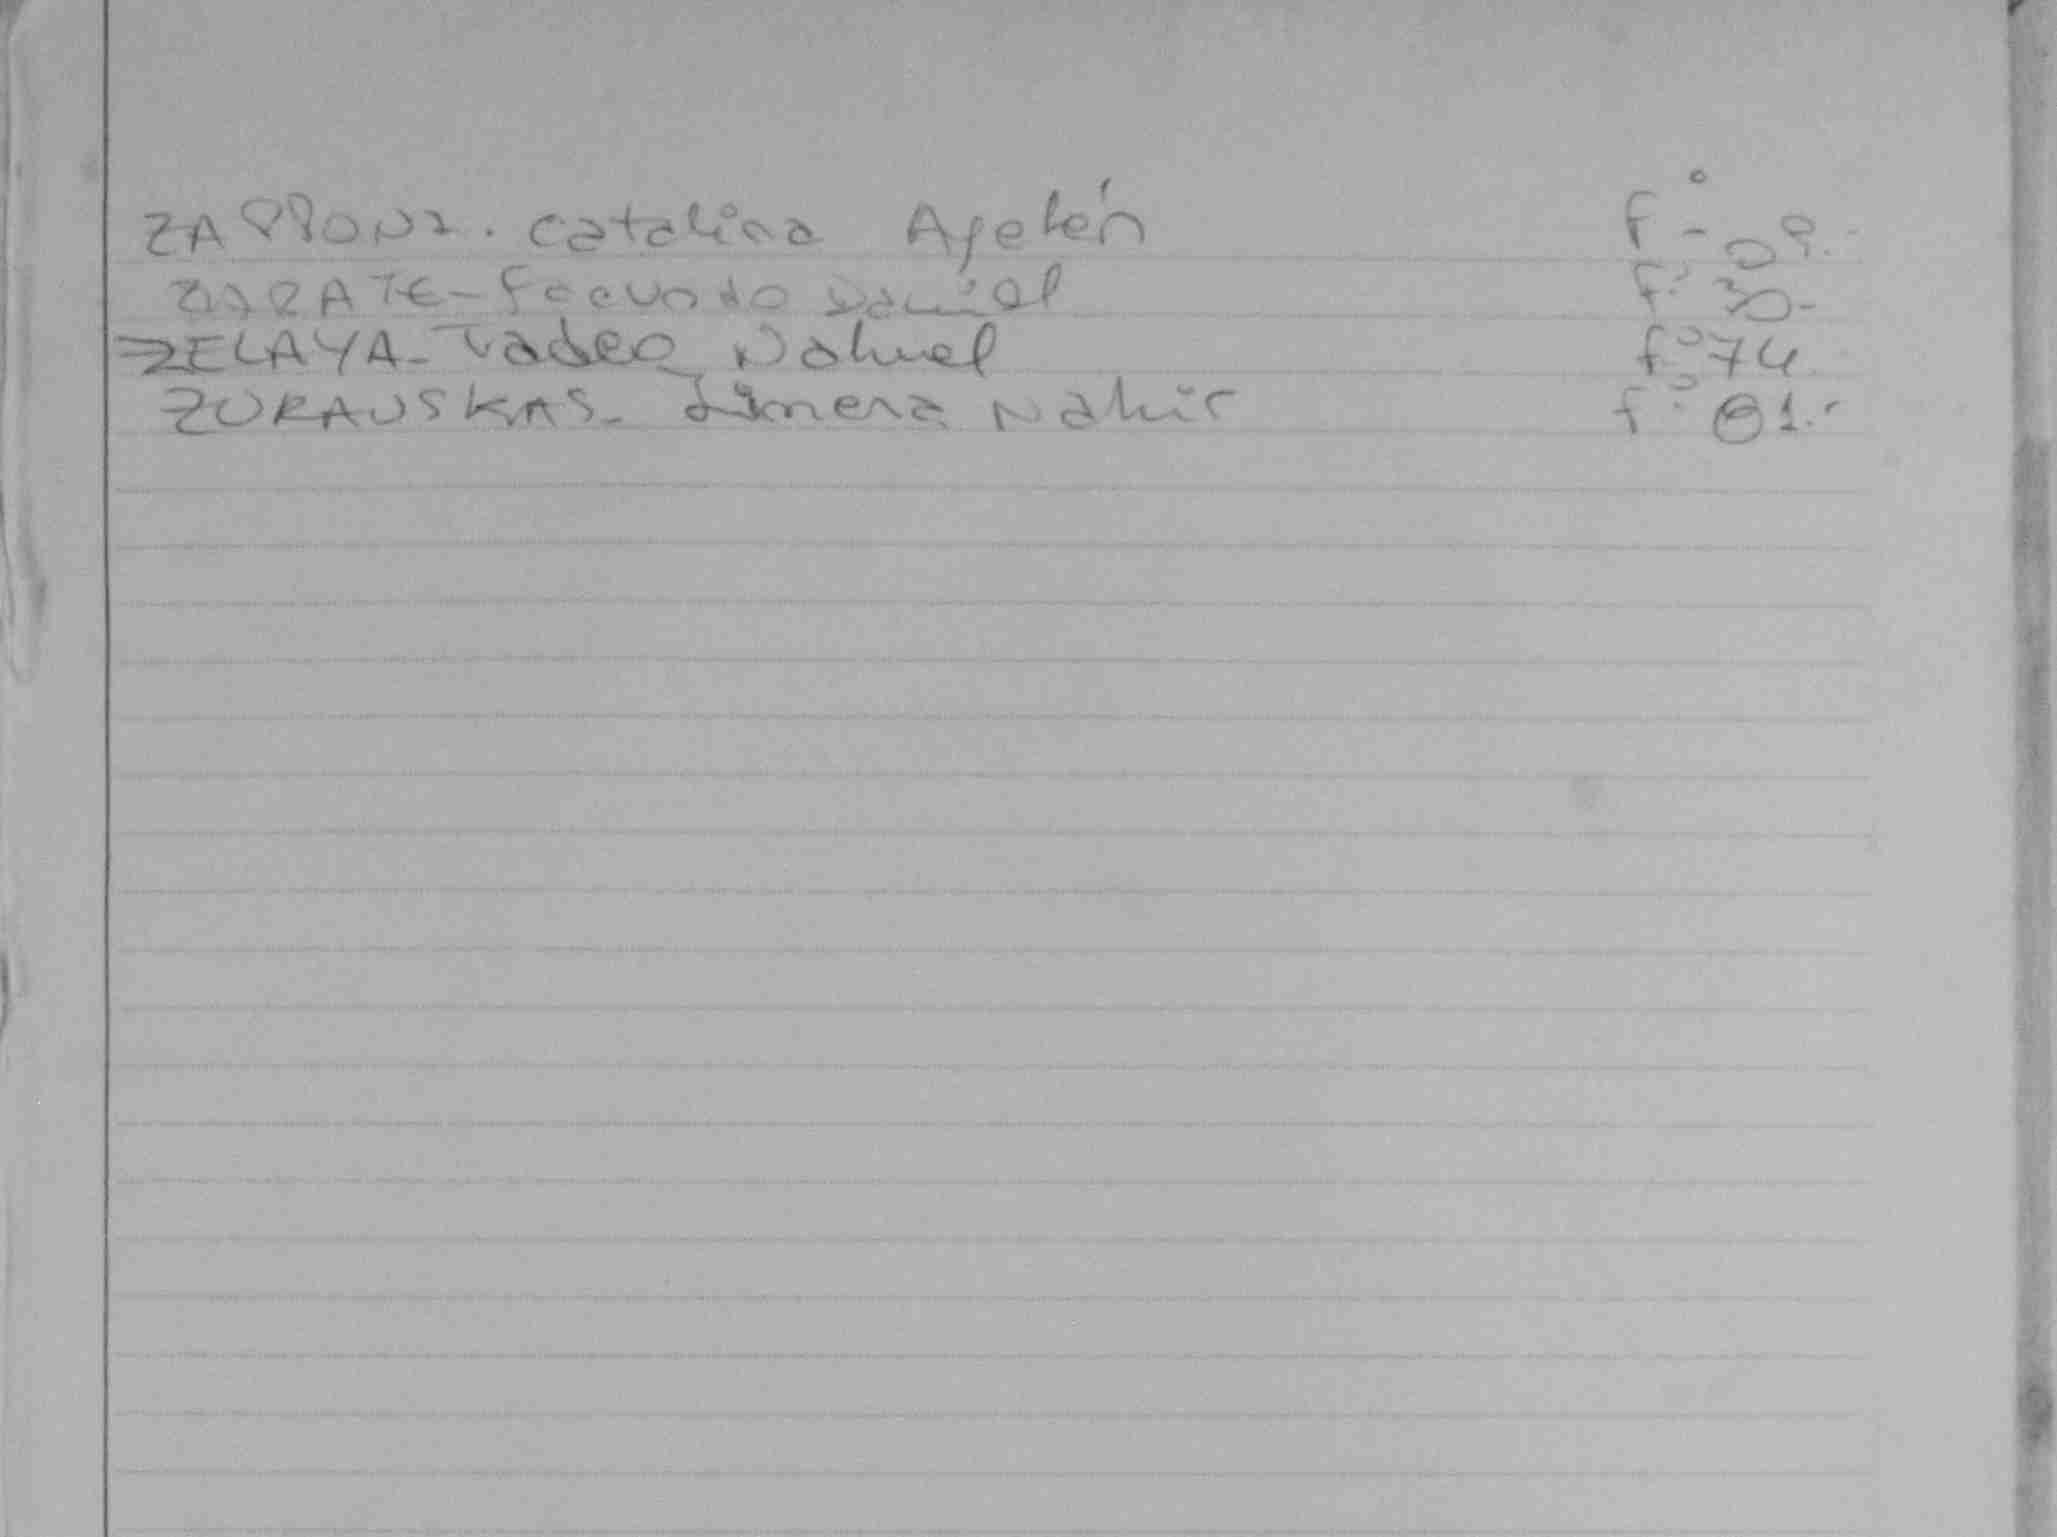 ZAPPONI. Catalina Ayelén f° 09.-
ZARATE - Facundo Daniel f° 30-
ZELAYA - Tadeo Nahuel f° 74
ZURAUSKAS - Jimena Nahir f° 81.-